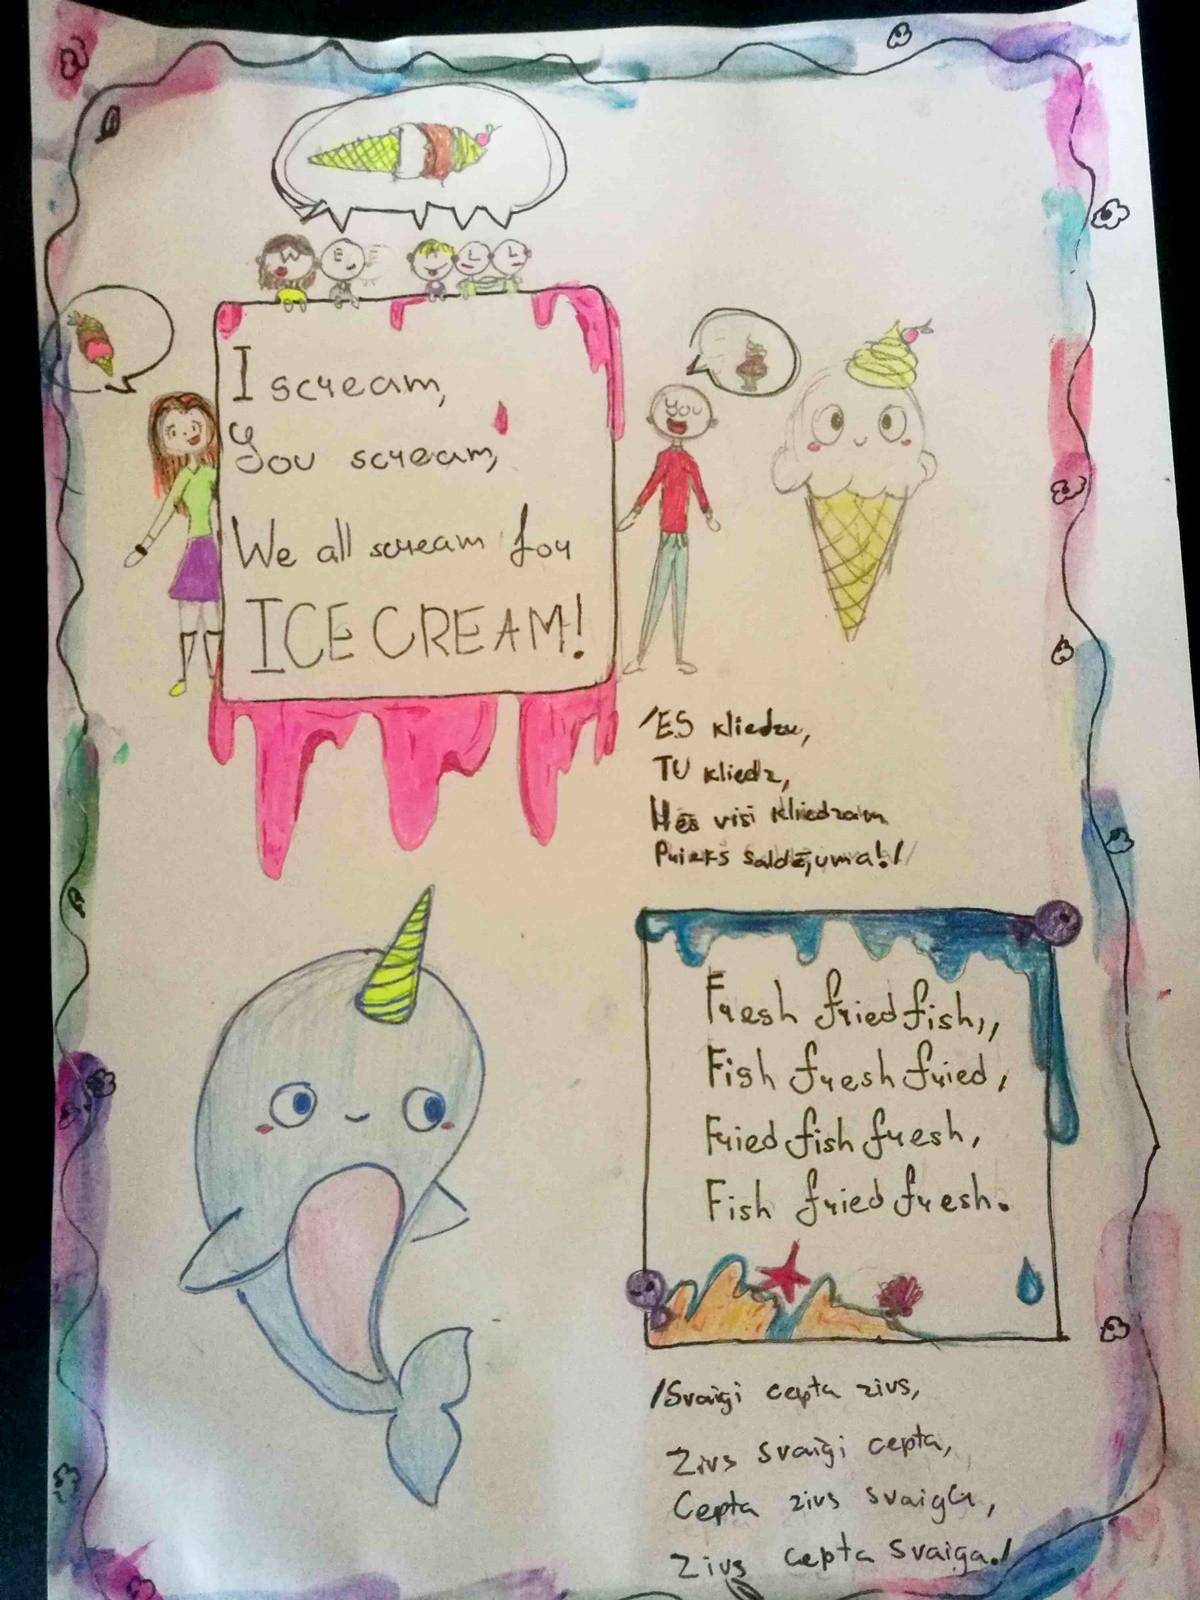 I scream,
You scream,
We all scream for
ICE CREAM!
W E
A L L
you
/ES kliedzu,
TU kliedz,
Mēs visi kliedzam
Priekš saldējuma!/
Fresh fried fish,,
Fish fresh fried,
Fried fish fresh,
Fish fried fresh.
/Svaigi cepta zivs,
Zivs svaigi cepta,
Cepta zivs svaiga,
Zivs cepta svaiga./